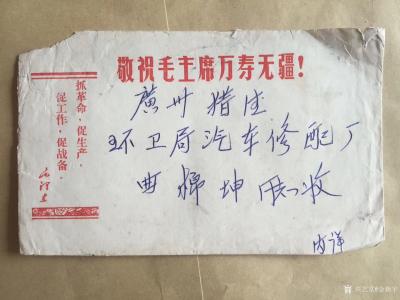 敬祝毛主席万寿无疆!
抓革命,促生产,
促工作,促战备。
毛泽东
廣州猎
环卫局汽车修配厂
坤同志收
内详